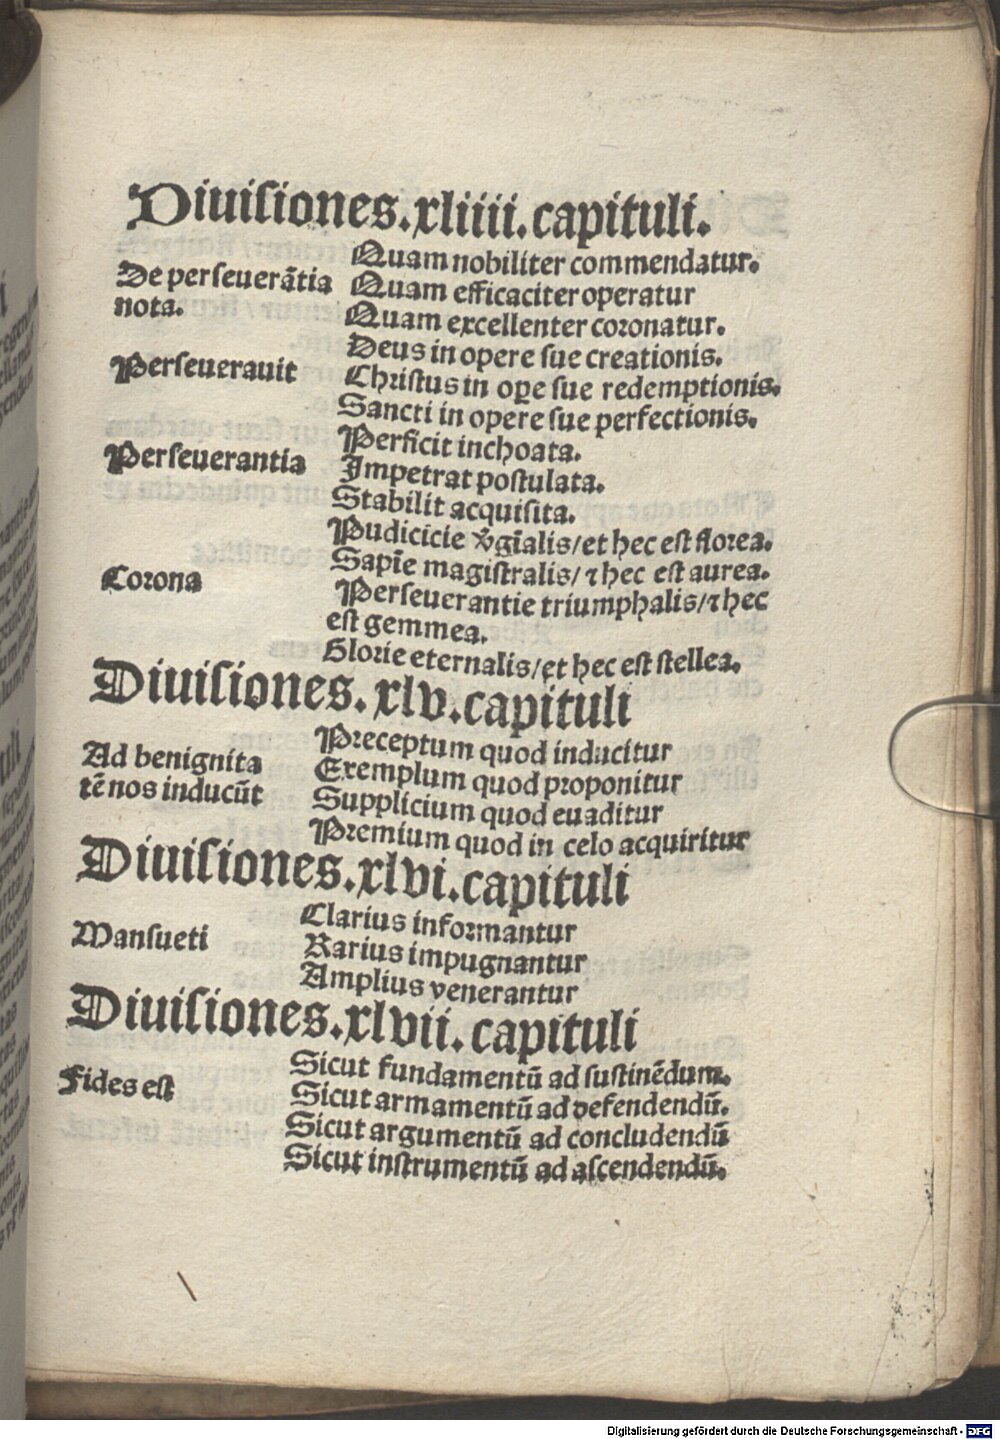 Diuisiones.xliiii.capituli.
Quam nobiliter commendatur.
De perseuerātia
nota.
Quam efficaciter operatur
Quam excellenter coronatur.
Perseuerauit
Deus in opere sue creationis.
Christus in oꝑe sue redemptionis.
Sancti in opere sue perfectionis.
Perseuerantia
Perficit inchoata.
Impetrat postulata.
Stabilit acquisita.
Corona
Pudicicie v̾gīalis/et hec est florea.
Sapīe magistralis/⁊ hec est aurea.
Perseuerantie triumphalis/⁊ hec
est gemmea.
Glorie eternalis/et hec est stellea.
Diuisiones.xlv.capituli
Ad benignita
tē nos inducūt
Preceptum quod inducitur
Exemplum quod proponitur
Supplicium quod euaditur
Premium quod in celo acquiritur
Diuisiones.xlvi.capituli
Mansueti
Clarius informantur
Rarius impugnantur
Amplius venerantur
Diuisiones.xlvii.capituli
Fides est
Sicut fundamentū ad sustinēdum.
Sicut armamentū ad defendendū.
Sicut argumentū ad concludendū
Sicut instrumentū ad ascendendū.
Digitalisierung gefördert durch die Deutsche Forschungsgemeinschaft - DFG